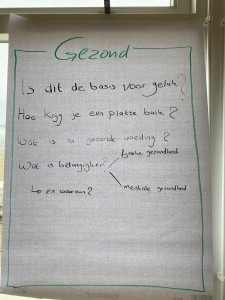 Gezond
Is dit de basis voor geluk?
Hoe krijg je een platte buik?
Wat is gezonde voeding?
fysieke gezondheid
Wat is belangrijker
mentale gezondheid
Lo en waarom?